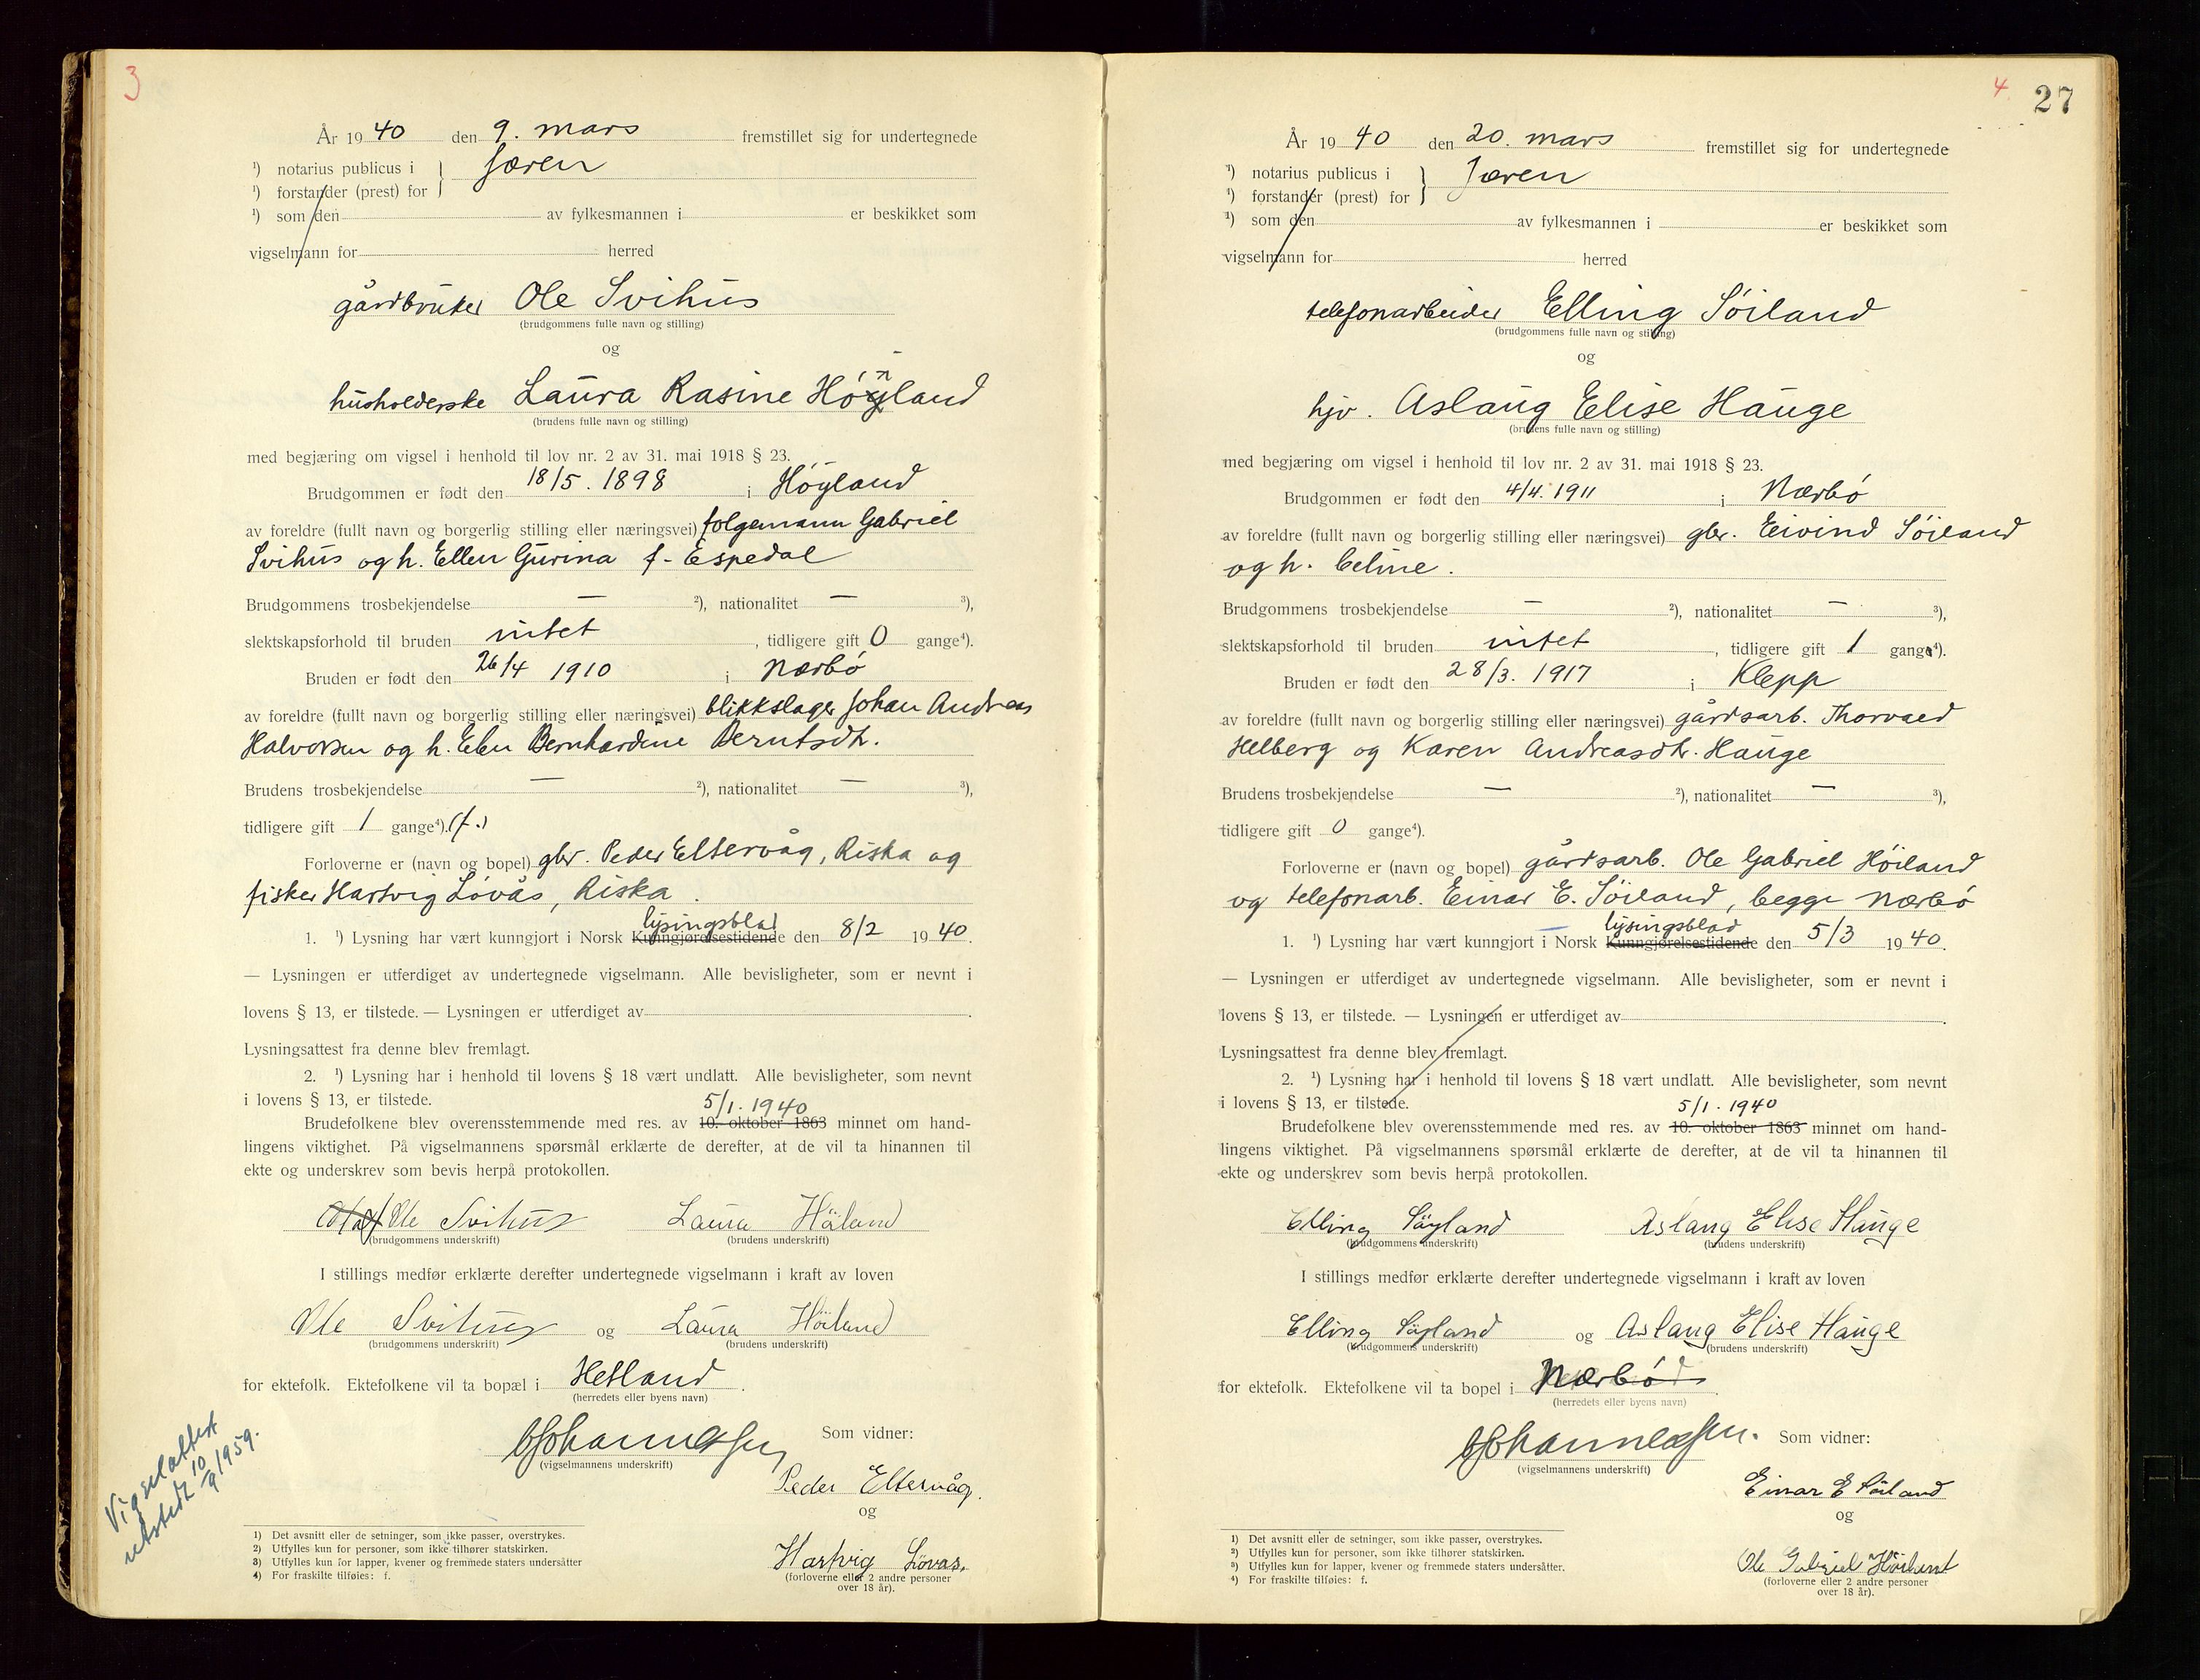 3
År 1940 den 9. mars fremstillet sig for undertegnede
¹) notarius publicus i } Jæren
¹) forstander (prest) for
¹) som den av fylkesmannen i er beskikket som
vigselmann for herred
gårdbruker Ole Svihus
(brudgommens fulle navn og stilling)
og
husholderske Laura Rasine Høyland
(brudens fulle navn og stilling)
med begjæring om vigsel i henhold til lov nr. 2 av 31. mai 1918 § 23.
Brudgommen er født den 18/5. 1898 i Høyland
av foreldre (fullt navn og borgerlig stilling eller næringsvei) følgemann Gabriel
Svihus og h. Ellen Gurina f. Espedal
Brudgommens trosbekjendelse — ²), nationalitet — ³),
slektskapsforhold til bruden intet, tidligere gift 0 gange⁴).
Bruden er født den 26/4 1910 i Nærbø
av foreldre (fullt navn og borgerlig stilling eller næringsvei) blikkslager Johan Andreas
Halvorsen og h. Elen Bernhardine Berntsdtr.
Brudens trosbekjendelse — ²), nationalitet — ³),
tidligere gift 1 gange⁴). (f.)
Forloverne er (navn og bopel) gbr. Peder Eltervåg, Riska og
fisker Hartvig Løvås, Riska.
lysingsblad
1. ¹) Lysning har vært kunngjort i Norsk Kunngjørelsestidende den 8/2 1940.
— Lysningen er utferdiget av undertegnede vigselmann. Alle bevisligheter, som er nevnt i
lovens § 13, er tilstede. — Lysningen er utferdiget av .
Lysningsattest fra denne blev fremlagt.
2. ¹) Lysning har i henhold til lovens § 18 vært undlatt. Alle bevisligheter, som nevnt
i lovens § 13, er tilstede.
5/1. 1940
Brudefolkene blev overensstemmende med res. av 10. oktober 1863 minnet om hand-
lingens viktighet. På vigselmannens spørsmål erklærte de derefter, at de vil ta hinannen til
ekte og underskrev som bevis herpå protokollen.
Ole Svihus Laura Höiland
(brudgommens underskrift) (brudens underskrift)
I stillings medfør erklærte derefter undertegnede vigselmann i kraft av loven
Ole Svihus og Laura Höiland
(brudgommens underskrift) (brudens underskrift)
for ektefolk. Ektefolkene vil ta bopæl i Hetland.
(herredets eller byens navn)
Johannessen Som vidner:
(vigselmannens underskrift)
Peder Eltervåg.
og
Hartvig Lövås.
(forloverne eller 2 andre personer
over 18 år).
Vigselattest
utstedt 10/9 1959.
1) Det avsnitt eller de setninger, som ikke passer, overstrykes.
2) Utfylles kun for personer, som ikke tilhører statskirken.
3) Utfylles kun for lapper, kvener og fremmede staters undersåtter
4) For fraskilte tilføies: f.
4 27
År 1940 den 20. mars fremstillet sig for undertegnede
¹) notarius publicus i } Jæren
¹) forstander (prest) for
¹) som den av fylkesmannen i er beskikket som
vigselmann for herred
telefonarbeider Elling Søiland
(brudgommens fulle navn og stilling)
og
hjv. Aslaug Elise Hauge
(brudens fulle navn og stilling)
med begjæring om vigsel i henhold til lov nr. 2 av 31. mai 1918 § 23.
Brudgommen er født den 4/4. 1911 i Nærbø
av foreldre (fullt navn og borgerlig stilling eller næringsvei) gbr. Eivind Søiland
og h. Celine.
Brudgommens trosbekjendelse — ²), nationalitet — ³),
slektskapsforhold til bruden intet, tidligere gift 1 gange⁴).
Bruden er født den 28/3. 1917 i Klepp
av foreldre (fullt navn og borgerlig stilling eller næringsvei) gårdsarb. Thorvald
Helberg og Karen Andreasdtr. Hauge
Brudens trosbekjendelse — ²), nationalitet — ³),
tidligere gift 0 gange⁴).
Forloverne er (navn og bopel) gårdsarb. Ole Gabriel Høiland
og telefonarb. Einar E. Søiland, begge Nærbø
lysingsblad
1. ¹) Lysning har vært kunngjort i Norsk Kunngjørelsestidende den 5/3 1940.
— Lysningen er utferdiget av undertegnede vigselmann. Alle bevisligheter, som er nevnt i
lovens § 13, er tilstede. — Lysningen er utferdiget av .
Lysningsattest fra denne blev fremlagt.
2. ¹) Lysning har i henhold til lovens § 18 vært undlatt. Alle bevisligheter, som nevnt
i lovens § 13, er tilstede.
5/1. 1940
Brudefolkene blev overensstemmende med res. av 10. oktober 1863 minnet om hand-
lingens viktighet. På vigselmannens spørsmål erklærte de derefter, at de vil ta hinannen til
ekte og underskrev som bevis herpå protokollen.
Elling Söyland Aslaug Elise Hauge
(brudgommens underskrift) (brudens underskrift)
I stillings medfør erklærte derefter undertegnede vigselmann i kraft av loven
Elling Söyland og Aslaug Elise Hauge
(brudgommens underskrift) (brudens underskrift)
for ektefolk. Ektefolkene vil ta bopel i Nærbø.
(herredets eller byens navn)
Johannessen. Som vidner:
(vigselmannens underskrift)
Einar E Söiland
og
Ole Gabriel Höiland
(forloverne eller 2 andre personer
over 18 år).
1) Det avsnitt eller de setninger, som ikke passer, overstrykes.
2) Utfylles kun for personer, som ikke tilhører statskirken.
3) Utfylles kun for lapper, kvener og fremmede staters undersåtter.
4) For fraskilte tilføies: f.